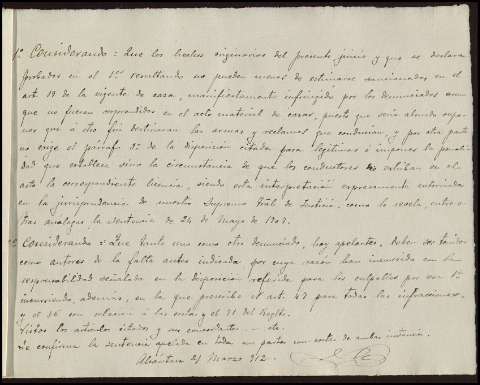 1º Considerando: Que los hechos originarios del presente juicio y que se declara
probados en el 1er resultando no pueden menos de estimarse sancionados en el
art. 19 de la vigente de caza, manifiestamente infringido por los denunciados aun
que no fueran sorprendidos en el acto material de cazar, puesto que sería absurdo supo
ner que á otro fin destinaran las armas y reclamos que conducían, y por otra parte
no exige el párrafo 2º de la disposición citada para legitimar é imponer la penali
dad que establece sino la circunstancia de que los conductores no exhiban en el
acto la correspondiente licencia, siendo esta interpretación expresamente autorizada
en la jurisprudencia de nuestro Supremo Tral de Justicia, como lo revela, entre o
tras analogas, la sentencia de 24 de Mayo de 1907.
Considerando: Que tanto uno como otro denunciado, hoy apelantes, deben ser tenidos
como autores de la falta antes indicada por cuya razón han incurrido en la
responsabilidad señalada en la disposición referida para los culpables por vez 1ª
incurriendo, además, en la que prescribe el art. 47 para todas las infracciones,
y el 36 con relación á las costas y el 71 del Reglto.
Vistos los artículos citados y sus concordantes - etc.
Se confirma la sentencia apelada en todas sus partes con costas de ambas instancias.
Alcántara 21 Marzo 912.